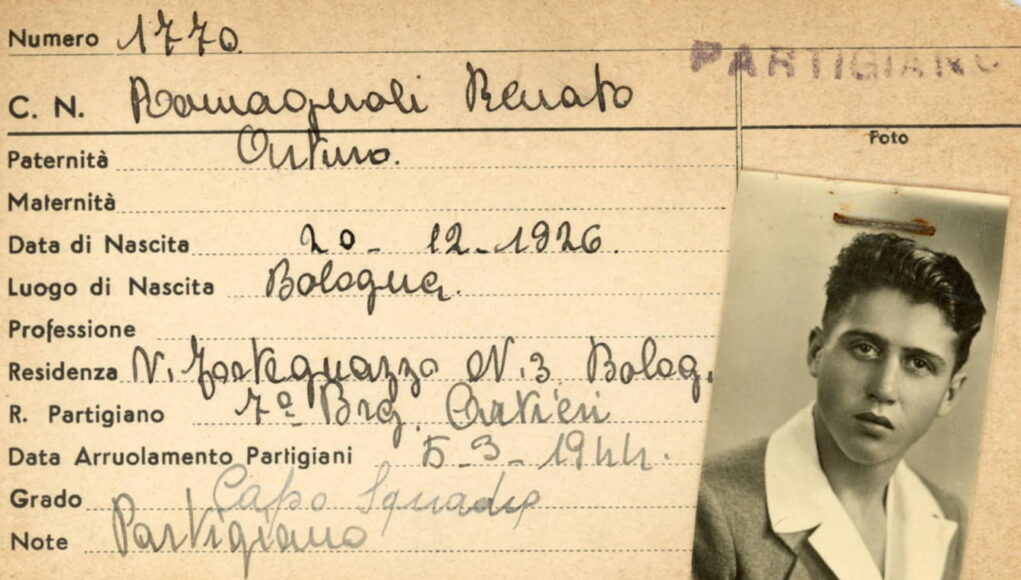 Numero 1770
PARTIGIANO
C. N. Romagnoli Renato
Foto
Paternità Arturo.
Maternità
Data di Nascita 20 - 12 - 1926.
Luogo di Nascita Bologna.
Professione
Residenza V. N. 3 Bolog.
R. Partigiano 7ª Brg.
Data Arruolamento Partigiani 5 - 3 - 1944.
Grado Capo Squadra
Note Partigiano